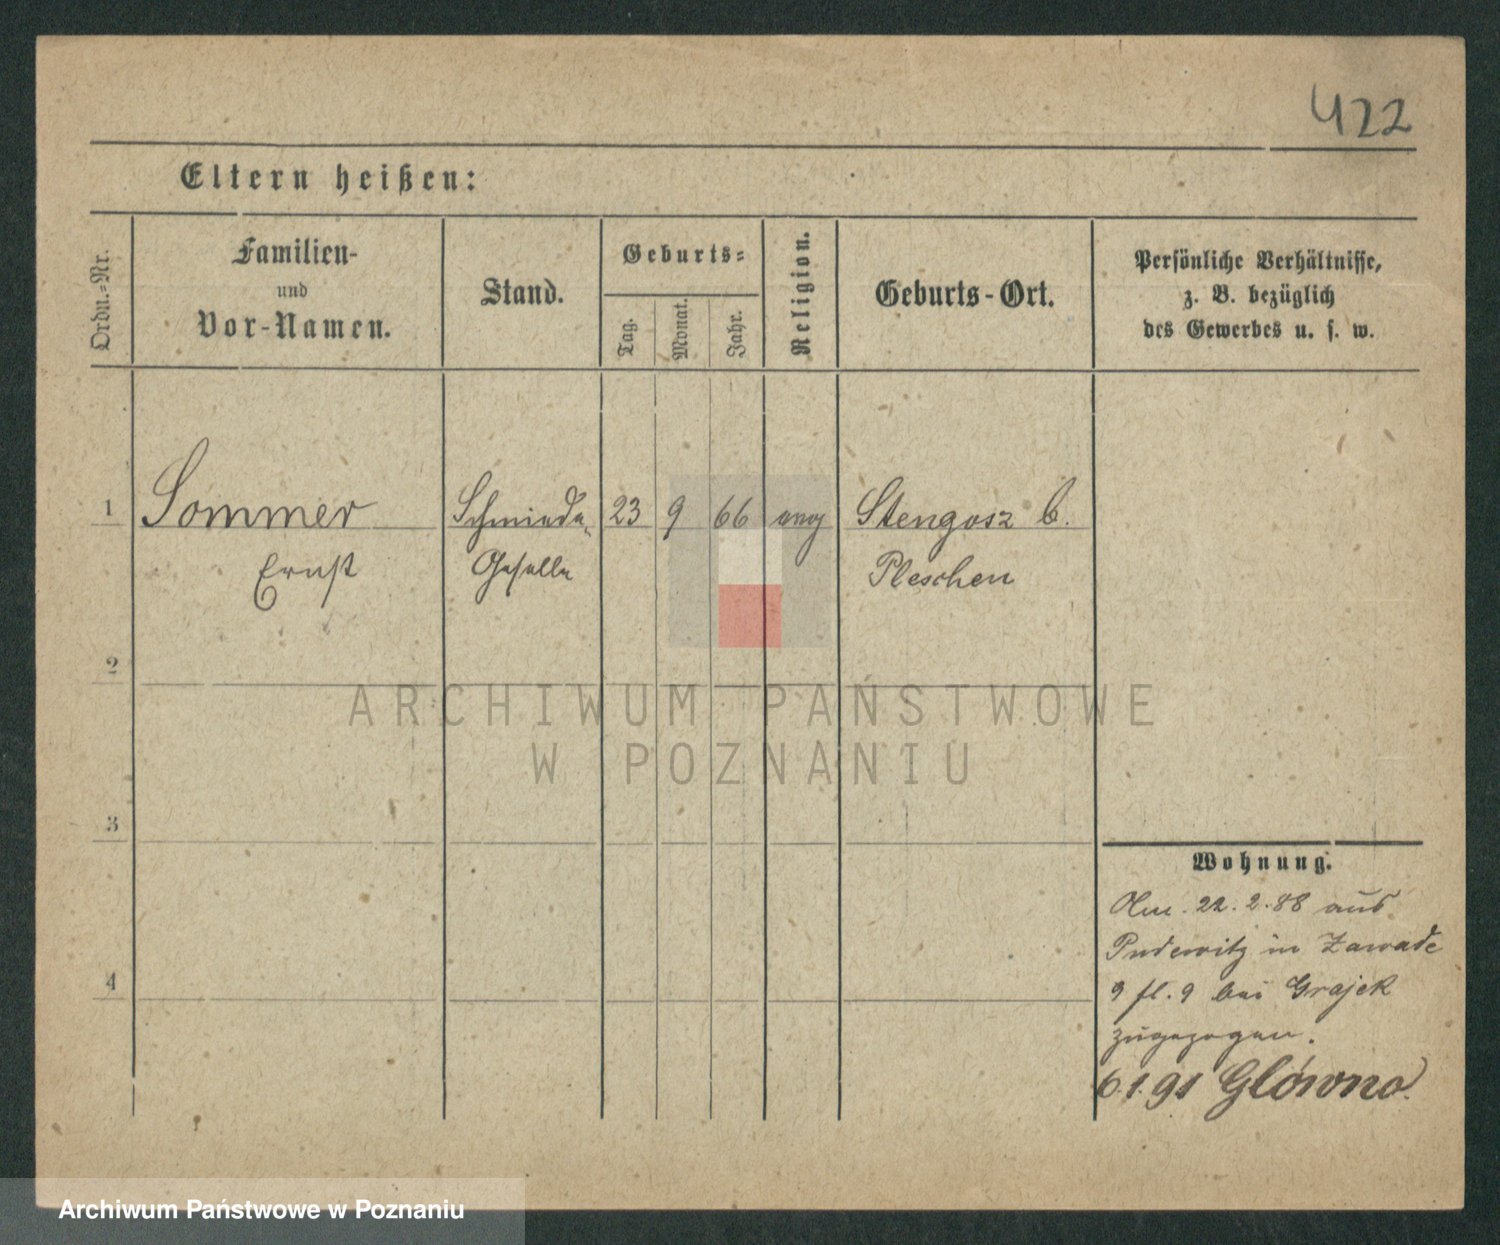 422
Eltern heißen:
Ordn.-Nr.
Familien-
und
Vor-Namen.
Stand.
Geburts-
Tag.
Monat.
Jahr.
Religion.
Geburts-Ort.
Persönliche Verhältnisse,
z. B. bezüglich
des Gewerbes u. s. w.
1 Sommer Schmiede- 23 9 66 evng Stengosz b.
Ernst Geselle Pleschen
2
3
4
Wohnung.
Am 22.2.88 aus
Pudewitz in Zawade
9 fl. 9 bei Grajek
zugezogen.
6.1.91 Glówno.
ARCHIWUM PAŃSTWOWE
W POZNANIU
Archiwum Państwowe w Poznaniu